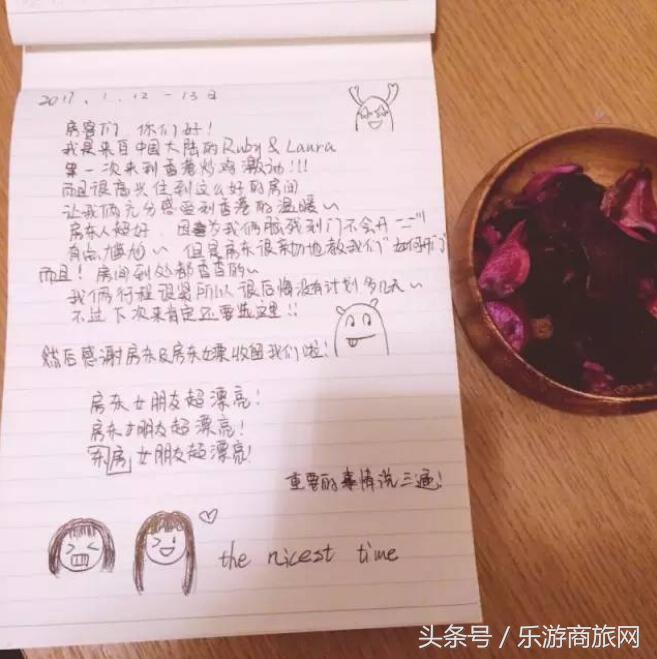 2017.1.12-13日
房客们,你们好!
我是来自中国大陆的Ruby & Laura
第一次来到香港炒鸡激动!!!
而且很高兴住到这么好的房间
让我俩充分感受到香港的温暖~
房东人超好,因为我俩脑残到门不会开
有点尴尬~ 但是房东很亲切地教我们"如何开门"
而且!房间到处都香香的~
我俩行程很紧所以很后悔没有计划多几天~
不过下次来肯定还要选这里!!
然后感谢房东及房东女票收留我们啦!
房东女朋友超漂亮!
房东女朋友超漂亮!
东房女朋友超漂亮!
重要的事情说三遍!
the nicest time
头条号/乐游商旅网